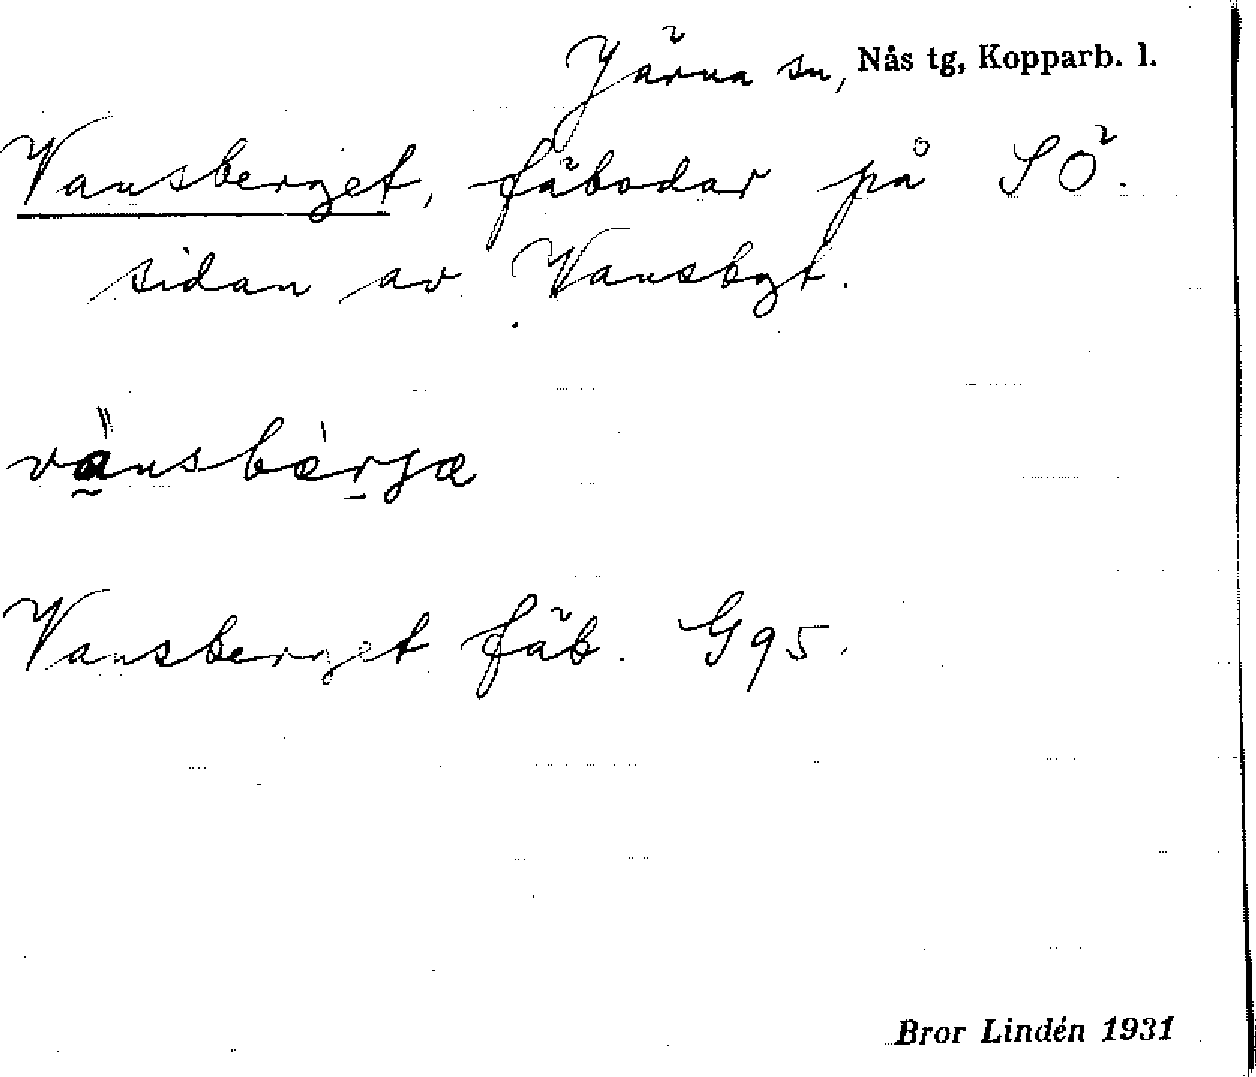 Järna sn, Nås tg, Kopparb. l.
Vansberget, fäbodar på SÖ.
sidan av Vansbgt.
vànsbærjæ
Vansberget fäb. G95.
Bror Lindén 1931